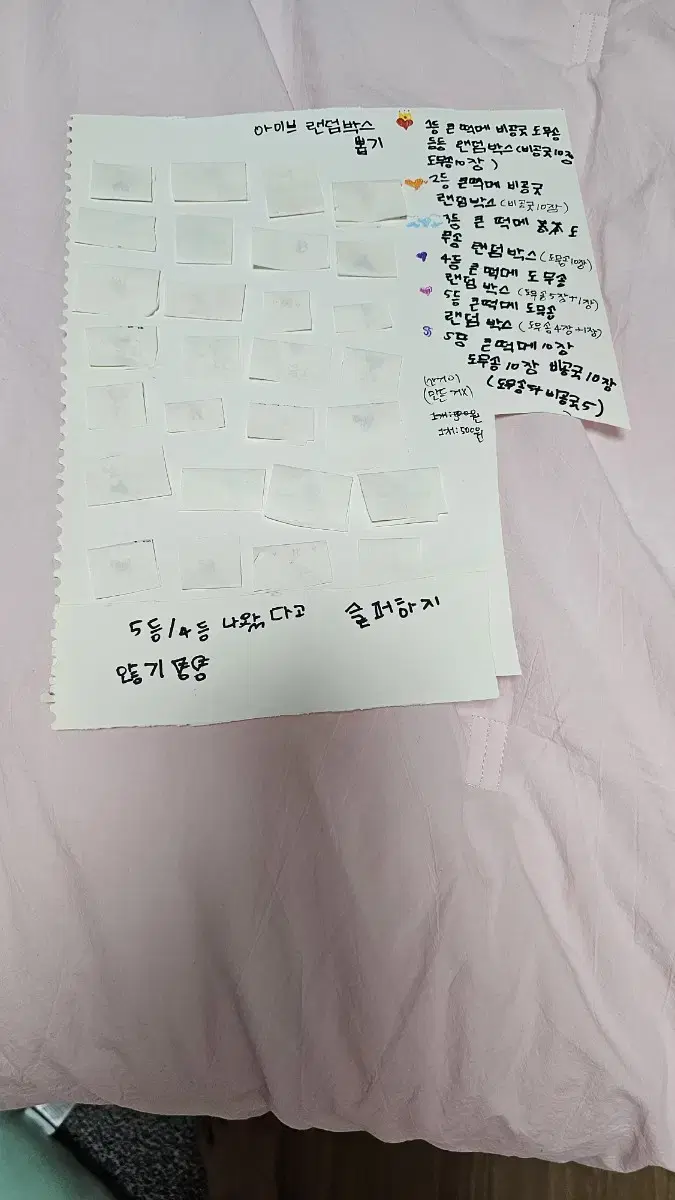 아이브 랜덤박스
뽑기
1등 큰 떡메 비공굿 도무송
등등 랜덤박스 (비공굿 10장
도무송 10장)
2등 큰떡메 비공굿
랜덤박스 (비공굿 10장)
3등 큰 떡메 도
무송 랜덤박스 (도무송 10장)
4등 큰 떡메 도무송
랜덤 박스 (도무송 5장+1장)
5등 큰떡메 도무송
랜덤 박스 (도무송 4장+1장)
5등 큰떡메 10장
도무송 10장 비공국 10장
(도무송다 비공국 5)
(산거O)
(만든 거X)
1개: 원
1개: 500원
5등/4등 나왔다고 슬퍼하지
않기